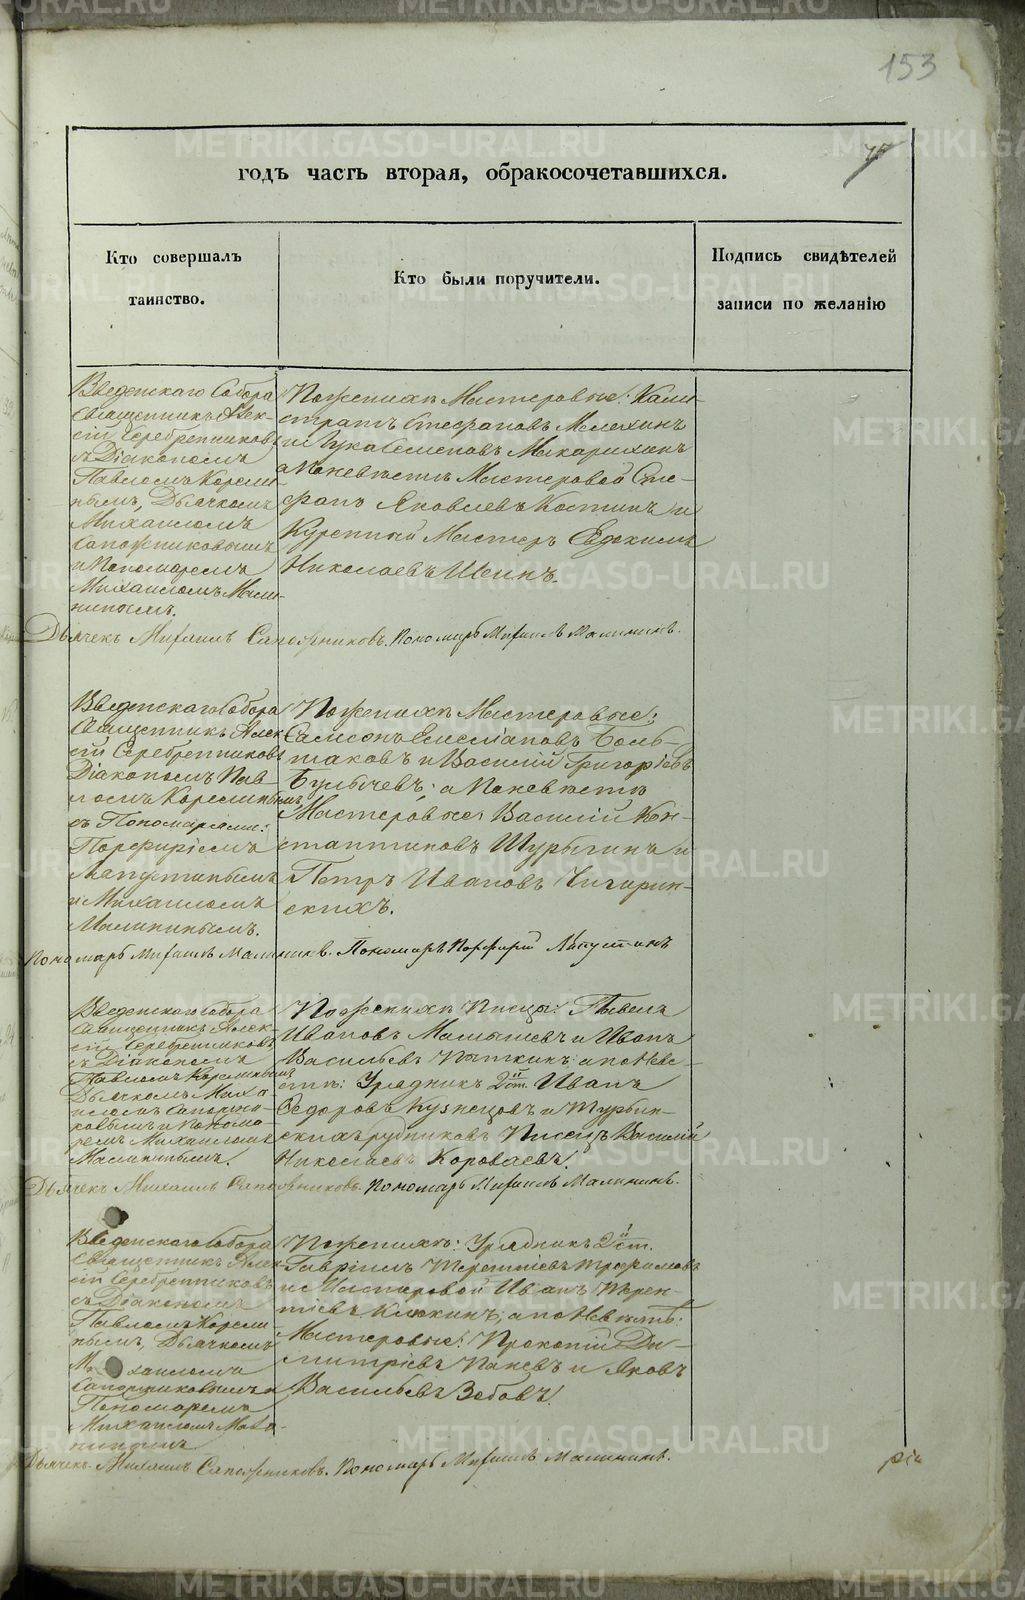 153
годъ часть вторая, обракосочетавшихся.
Кто совершалъ
таинство.
Кто были поручители.
Подпись свидѣтелей
записи по желанію
Введенскаго Собора
Священникъ Алек-
сій Серебренниковъ
съ Діакономъ
Павломъ Корели-
нымъ, Дьячкомъ
Михаиломъ
Сапожниковымъ
и Пономаремъ
Михаиломъ Мали-
нинымъ.
По женихѣ Мастеровые: Кали-
стратъ Стефановъ Мелехинъ
и Лука Семеновъ Макарихинъ
а По невѣстѣ Мастеровой Сте-
фанъ Яковлевъ Костинъ и
Куренный Мастеръ Евдокимъ
Николаевъ Шеинъ.
Дьячекъ Михаилъ Сапожниковъ. Пономарь Михаилъ Малининъ.
Введенскаго Собора
Священникъ Алек-
сій Серебренниковъ
Діакономъ Пав-
ломъ Корелинымъ,
съ Пономарями:
Порфиріемъ
Лапустинымъ
и Михаиломъ
Малининымъ.
По женихѣ Мастеровые:
Самсонъ Емеліановъ Боль-
шаковъ и Василій Григорьевъ
Булычевъ; а По невѣстѣ
Мастеровые Василій Кон-
стантиновъ Шурыгинъ и
Петръ Ивановъ Чигирин-
скихъ.
Пономарь Михаилъ Малининъ. Пономарь Порфирій Лапустинъ
Введенскаго Собора
Священникъ Алек-
сій Серебренниковъ
съ Діакономъ
Павломъ Корелинымъ
Дьячкомъ Миха-
иломъ Сапожни-
ковымъ и Понома-
ремъ Михаиломъ
Малининымъ.
По женихѣ Писцы: Павелъ
Ивановъ Малышевъ и Иванъ
Васильевъ Пяткинъ: а по Невѣ-
стѣ: Урядникъ 2й ст. Иванъ
Федоровъ Кузнецовъ и Турьин-
скихъ рудниковъ Писецъ Василій
Николаевъ Короваевъ.
Дьячекъ Михаилъ Сапожниковъ. Пономарь Михаилъ Малининъ.
Введенскаго Собора
Священникъ Алек-
сій Серебренниковъ
съ Діакономъ
Павломъ Корели-
нымъ, Дьячкомъ
Михаиломъ
Сапожниковымъ и
Пономаремъ
Михаиломъ Мали-
нинымъ
По женихѣ: Урядникъ 2й ст.
Гавріилъ Терентіевъ Трофимовъ
и Мастеровой Иванъ Терен-
тіевъ Клюкинъ, а по Невѣстѣ:
Мастеровые: Прокопій Ди-
митріевъ Паневъ и Яковъ
Васильевъ Зобовъ.
Дьячекъ Михаилъ Сапожниковъ. Пономарь Михаилъ Малининъ.
METRIKI.GASO-URAL.RU